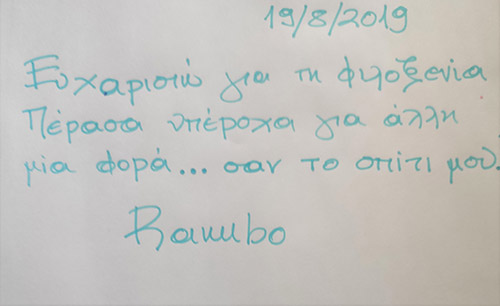 19/8/2019
Ευχαριστώ για τη φιλοξενία
Πέρασα υπέροχα για άλλη
μία φορά... σαν το σπίτι μου!